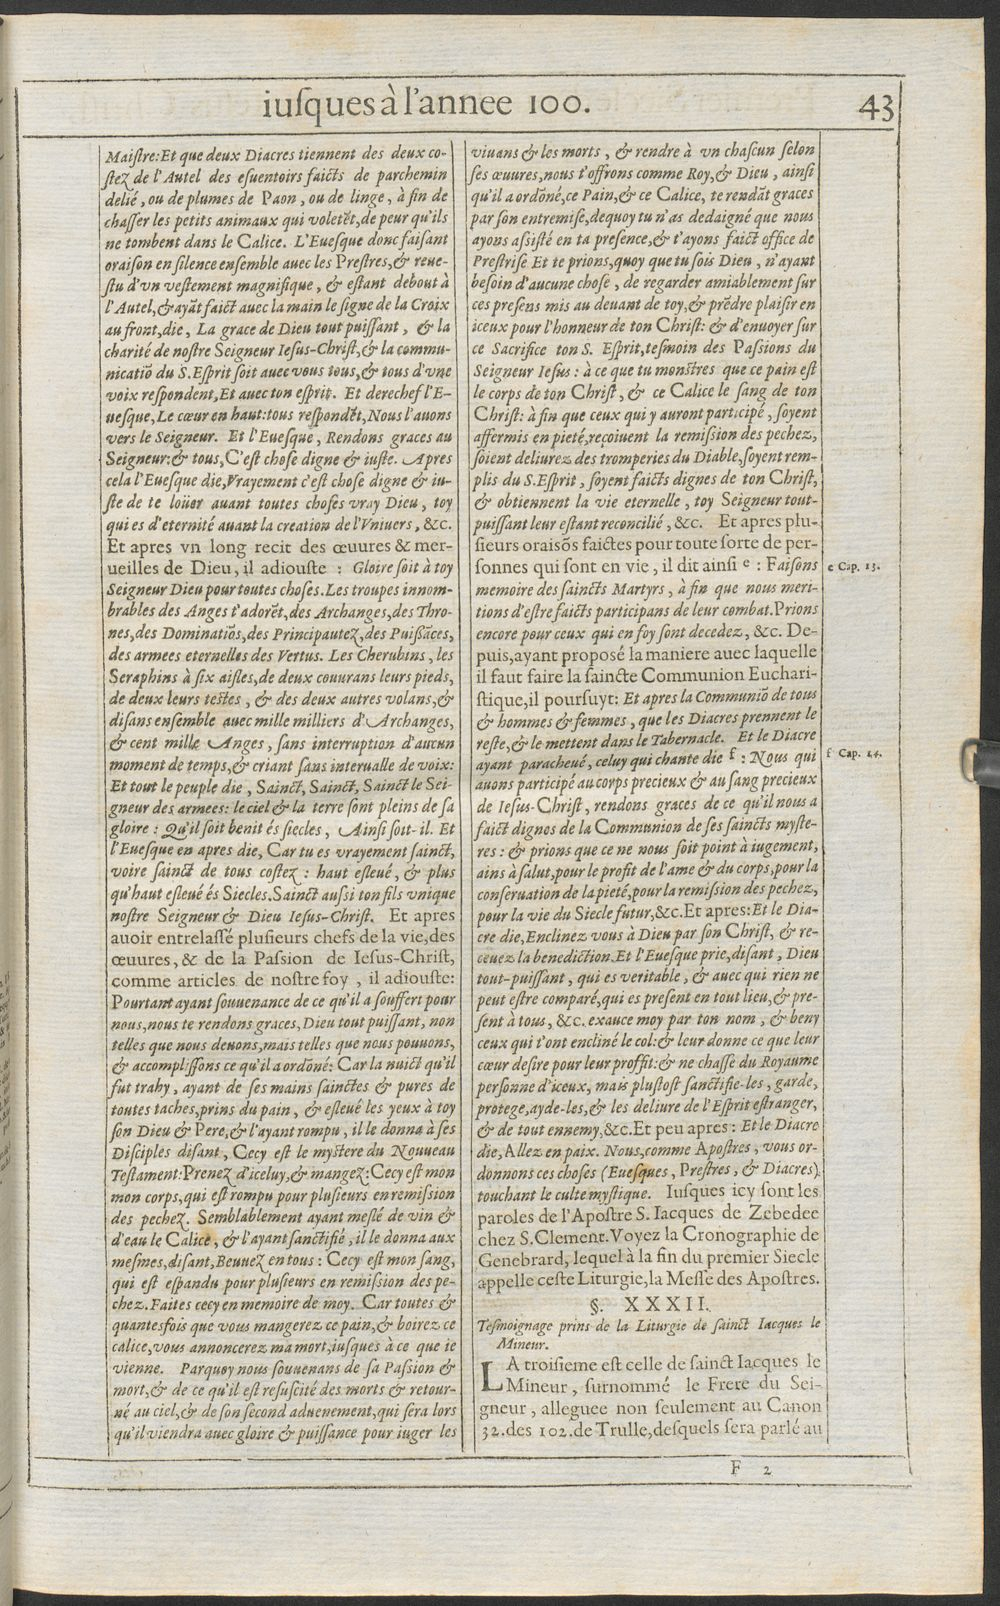 iuſques à l'annee 100.
43
Maiſtre: Et que deux Diacres tiennent des deux co-
ſtez de l'Autel des eſuentoirs faicts de parchemin
delié, ou de plumes de Paon, ou de linge, à fin de
chaſſer les petits animaux qui voletẽt, de peur qu'ils
ne tombent dans le Calice. L'Eueſque donc faiſant
oraiſon en ſilence enſemble auec les Preſtres, & reue-
ſtu d'vn veſtement magnifique, & eſtant debout à
l'Autel, & ayãt faict auec la main le ſigne de la Croix
au front, die, La grace de Dieu tout puiſſant, & la
charité de noſtre Seigneur Ieſus-Chriſt, & la commu-
nicatiõ du S. Eſprit ſoit auec vous tous, & tous d'vne
voix reſpondent, Et auec ton eſprit. Et derechef l'E-
ueſque, Le cœur en haut: tous reſpondẽt, Nous l'auons
vers le Seigneur. Et l'Eueſque, Rendons graces au
Seigneur: & tous, C'eſt choſe digne & iuſte. Apres
cela l'Eueſque die, Vrayement c'eſt choſe digne & iu-
ſte de te loüer auant toutes choſes vray Dieu, toy
qui es d'eternité auant la creation de l'Vniuers, &c.
Et apres vn long recit des œuures & mer-
ueilles de Dieu, il adiouſte : Gloire ſoit à toy
Seigneur Dieu pour toutes choſes. Les troupes innom-
brables des Anges t'adorẽt, des Archanges, des Thro-
nes, des Dominatiõs, des Principautez, des Puiſſãces,
des armees eternelles des Vertus. Les Cherubins, les
Seraphins à ſix aiſles, de deux couurans leurs pieds,
de deux leurs teſtes, & des deux autres volans, &
diſans enſemble auec mille milliers d'Archanges,
& cent mille Anges, ſans interruption d'aucun
moment de temps, & criant ſans interualle de voix:
Et tout le peuple die, Sainct, Sainct, Sainct le Sei-
gneur des armees: le ciel & la terre ſont pleins de ſa
gloire : Qu'il ſoit benit és ſiecles, Ainſi ſoit-il. Et
l'Eueſque en apres die, Car tu es vrayement ſainct,
voire ſainct de tous coſtez : haut eſleué, & plus
qu'haut eſleué és Siecles. Sainct auſsi ton fils vnique
noſtre Seigneur & Dieu Ieſus-Chriſt. Et apres
auoir entrelaſſé pluſieurs chefs de la vie, des
œuures, & de la Paſsion de Ieſus-Chriſt,
comme articles de noſtre foy, il adiouſte:
Pourtant ayant ſouuenance de ce qu'il a ſouffert pour
nous, nous te rendons graces, Dieu tout puiſſant, non
telles que nous deuons, mais telles que nous pouuons,
& accompliſſons ce qu'il a ordõné: Car la nuict qu'il
fut trahy, ayant de ſes mains ſainctes & pures de
toutes taches, prins du pain, & eſleué les yeux à toy
ſon Dieu & Pere, & l'ayant rompu, il le donna à ſes
Diſciples diſant, Cecy eſt le myſtere du Nouueau
Teſtament: Prenez d'iceluy, & mangez: Cecy eſt mon
mon corps, qui eſt rompu pour pluſieurs en remiſsion
des pechez. Semblablement ayant meſlé de vin &
d'eau le Calice, & l'ayant ſanctifié, il le donna aux
meſmes, diſant, Beuuez en tous : Cecy eſt mon ſang,
qui eſt eſpandu pour pluſieurs en remiſsion des pe-
chez. Faites cecy en memoire de moy. Car toutes &
quantesfois que vous mangerez ce pain, & boirez ce
calice, vous annoncerez ma mort, iuſques à ce que ie
vienne. Parquoy nous ſouuenans de ſa Paſsion &
mort, & de ce qu'il eſt reſuſcité des morts & retour-
né au ciel, & de ſon ſecond aduenement, qui ſera lors
qu'il viendra auec gloire & puiſſance pour iuger les
viuans & les morts, & rendre à vn chaſcun ſelon
ſes œuures, nous t'offrons comme Roy, & Dieu, ainſi
qu'il a ordõné, ce Pain, & ce Calice, te rendãt graces
par ſon entremiſe, dequoy tu n'as dedaigné que nous
ayons aſsiſté en ta preſence, & t'ayons faict office de
Preſtriſe Et te prions, quoy que tu ſois Dieu, n'ayant
beſoin d'aucune choſe, de regarder amiablement ſur
ces preſens mis au deuant de toy, & prẽdre plaiſir en
iceux pour l'honneur de ton Chriſt: & d'enuoyer ſur
ce Sacrifice ton S. Eſprit, teſmoin des Paſsions du
Seigneur Ieſus : à ce que tu monſtres que ce pain eſt
le corps de ton Chriſt, & ce Calice le ſang de ton
Chriſt: à fin que ceux qui y auront participé, ſoyent
affermis en pieté, reçoiuent la remiſsion des pechez,
ſoient deliurez des tromperies du Diable, ſoyent rem-
plis du S. Eſprit, ſoyent faicts dignes de ton Chriſt,
& obtiennent la vie eternelle, toy Seigneur tout-
puiſſant leur eſtant reconcilié, &c. Et apres plu-
ſieurs oraiſõs faictes pour toute ſorte de per-
ſonnes qui ſont en vie, il dit ainſi e : Faiſons
memoire des ſaincts Martyrs, à fin que nous meri-
tions d'eſtre faicts participans de leur combat. Prions
encore pour ceux qui en foy ſont decedez, &c. De-
puis, ayant propoſé la maniere auec laquelle
il faut faire la ſaincte Communion Euchari-
ſtique, il pourſuyt: Et apres la Communiõ de tous
& hommes & femmes, que les Diacres prennent le
reſte, & le mettent dans le Tabernacle. Et le Diacre
ayant paracheué, celuy qui chante die f : Nous qui
auons participé au corps precieux & au ſang precieux
de Ieſus-Chriſt, rendons graces de ce qu'il nous a
faict dignes de la Communion de ſes ſaincts myſte-
res : & prions que ce ne nous ſoit point à iugement,
ains à ſalut, pour le profit de l'ame & du corps, pour la
conſeruation de la pieté, pour la remiſsion des pechez,
pour la vie du Siecle futur, &c. Et apres: Et le Dia-
cre die, Enclinez vous à Dieu par ſon Chriſt, & re-
ceuez la benediction. Et l'Eueſque prie, diſant, Dieu
tout-puiſſant, qui es veritable, & auec qui rien ne
peut eſtre comparé, qui es preſent en tout lieu, & pre-
ſent à tous, &c. exauce moy par ton nom, & beny
ceux qui t'ont encliné le col: & leur donne ce que leur
cœur deſire pour leur proffit: & ne chaſſe du Royaume
perſonne d'iceux, mais pluſtoſt ſanctifie-les, garde,
protege, ayde-les, & les deliure de l'Eſprit eſtranger,
& de tout ennemy, &c. Et peu apres : Et le Diacre
die, Allez en paix. Nous, comme Apoſtres, vous or-
donnons ces choſes (Eueſques, Preſtres, & Diacres)
touchant le culte myſtique. Iuſques icy ſont les
paroles de l'Apoſtre S. Iacques de Zebedee
chez S. Clement. Voyez la Cronographie de
Genebrard, lequel à la fin du premier Siecle
appelle ceſte Liturgie, la Meſſe des Apoſtres.
§. XXXII.
Teſmoignage prins de la Liturgie de ſainct Iacques le
Mineur.
LA troiſieme eſt celle de ſainct Iacques le
Mineur, ſurnommé le Frere du Sei-
gneur, alleguee non ſeulement au Canon
32. des 102. de Trulle, deſquels ſera parlé au
e Cap. 13.
f Cap. 14.
F 2